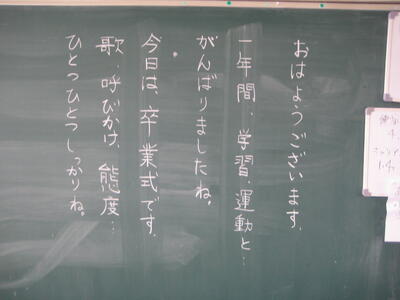 おはようございます。
一年間、学習、運動と…
がんばりましたね。
今日は、卒業式です。
歌、呼びかけ、態度…
ひとつひとつしっかりね。